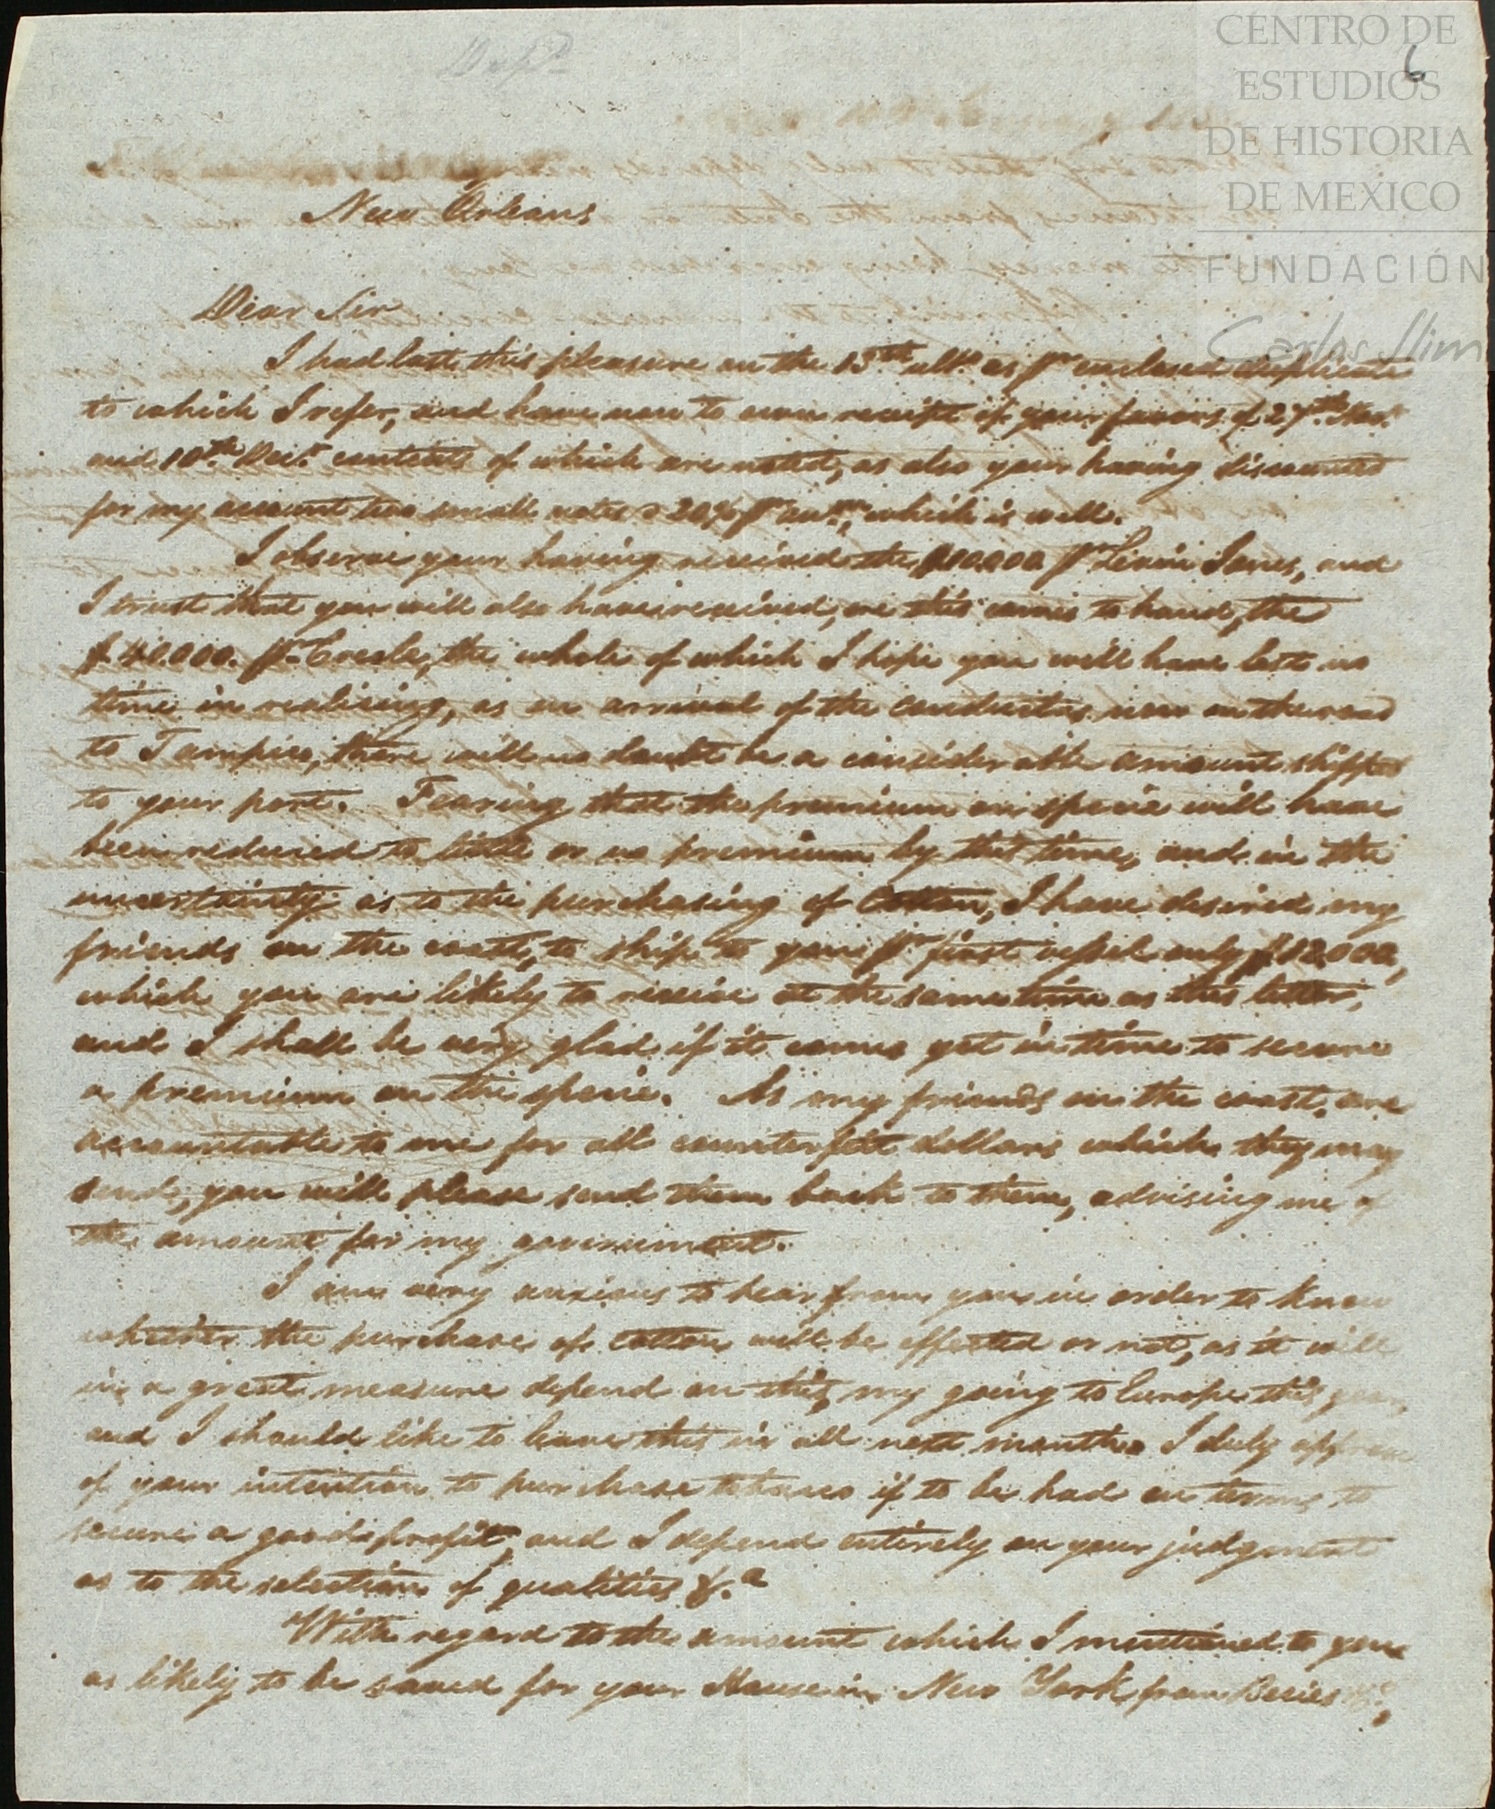 Dup^d
6
CENTRO DE
ESTUDIOS
DE HISTORIA
DE MEXICO
FUNDACIÓN
Carlos Slim
New Orleans
Dear Sir
I had last this pleasure on the 13th ulto. as pr enclosed duplicate
to which I refer, and have now to own receipt of your favors of 27th Novr.
and 10th Decr. contents of which are noted, as also your having discounted
for my account two small notes @ 20% pr anm, which is well.
I observe your having received the $10.000 pr Levin Jones, and
I trust that you will also have received, ere this comes to hand, the
$40.000. pr Creole, the whole of which I hope you will have lost no
time in realising, as on arrival of the conductas now on the road
to Tampico, there will no doubt be a considerable amount shipped
to your port. Fearing that the premium on specie will have
been reduced to little or no premium by this time, and in the
uncertainty as to the purchasing of Cotton, I have desired my
friends on the coast, to ship to you pr first vessel only $12.000,
which you are likely to receive at the same time as this letter,
and I shall be very glad if it comes yet in time to secure
a premium on the specie. As my friends on the coast, are
accountable to me for all counterfeit dollars which they may
send, you will please send them back to them, advising me of
the amount for my government.
I am very anxious to hear from you in order to know
whether the purchase of cotton will be effected or not, as it will
in a great measure depend on this, my going to Europe this year,
and I should like to leave this in all next month. I duly approve
of your intention to purchase tobacco if to be had on terms to
secure a good profit, and I depend entirely on your judgment
as to the selection of qualities &.a
With regard to the amount which I mentioned to you
as likely to be saved for your House in New York from